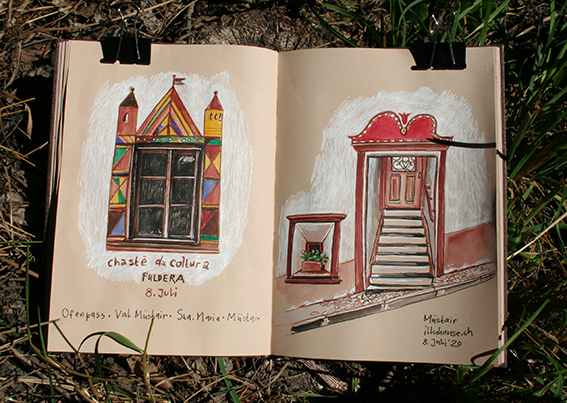 chastè da coltura
FULDERA
8. Juli
Ofenpass. Val Müstair. Sta. Maria. Müstair
Müstair
illishouse.ch
8. Juli '20